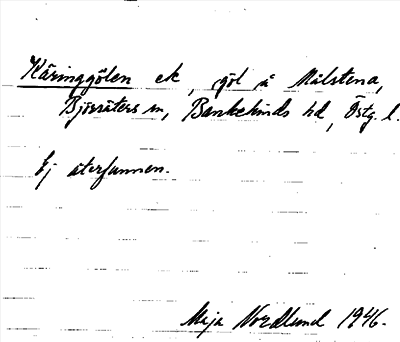 Käringgölen ek, göl å Målstena,
Björsäters sn, Bankekinds hd, Östg. l.
Ej återfunnen.
Maja Nordlund 1946.